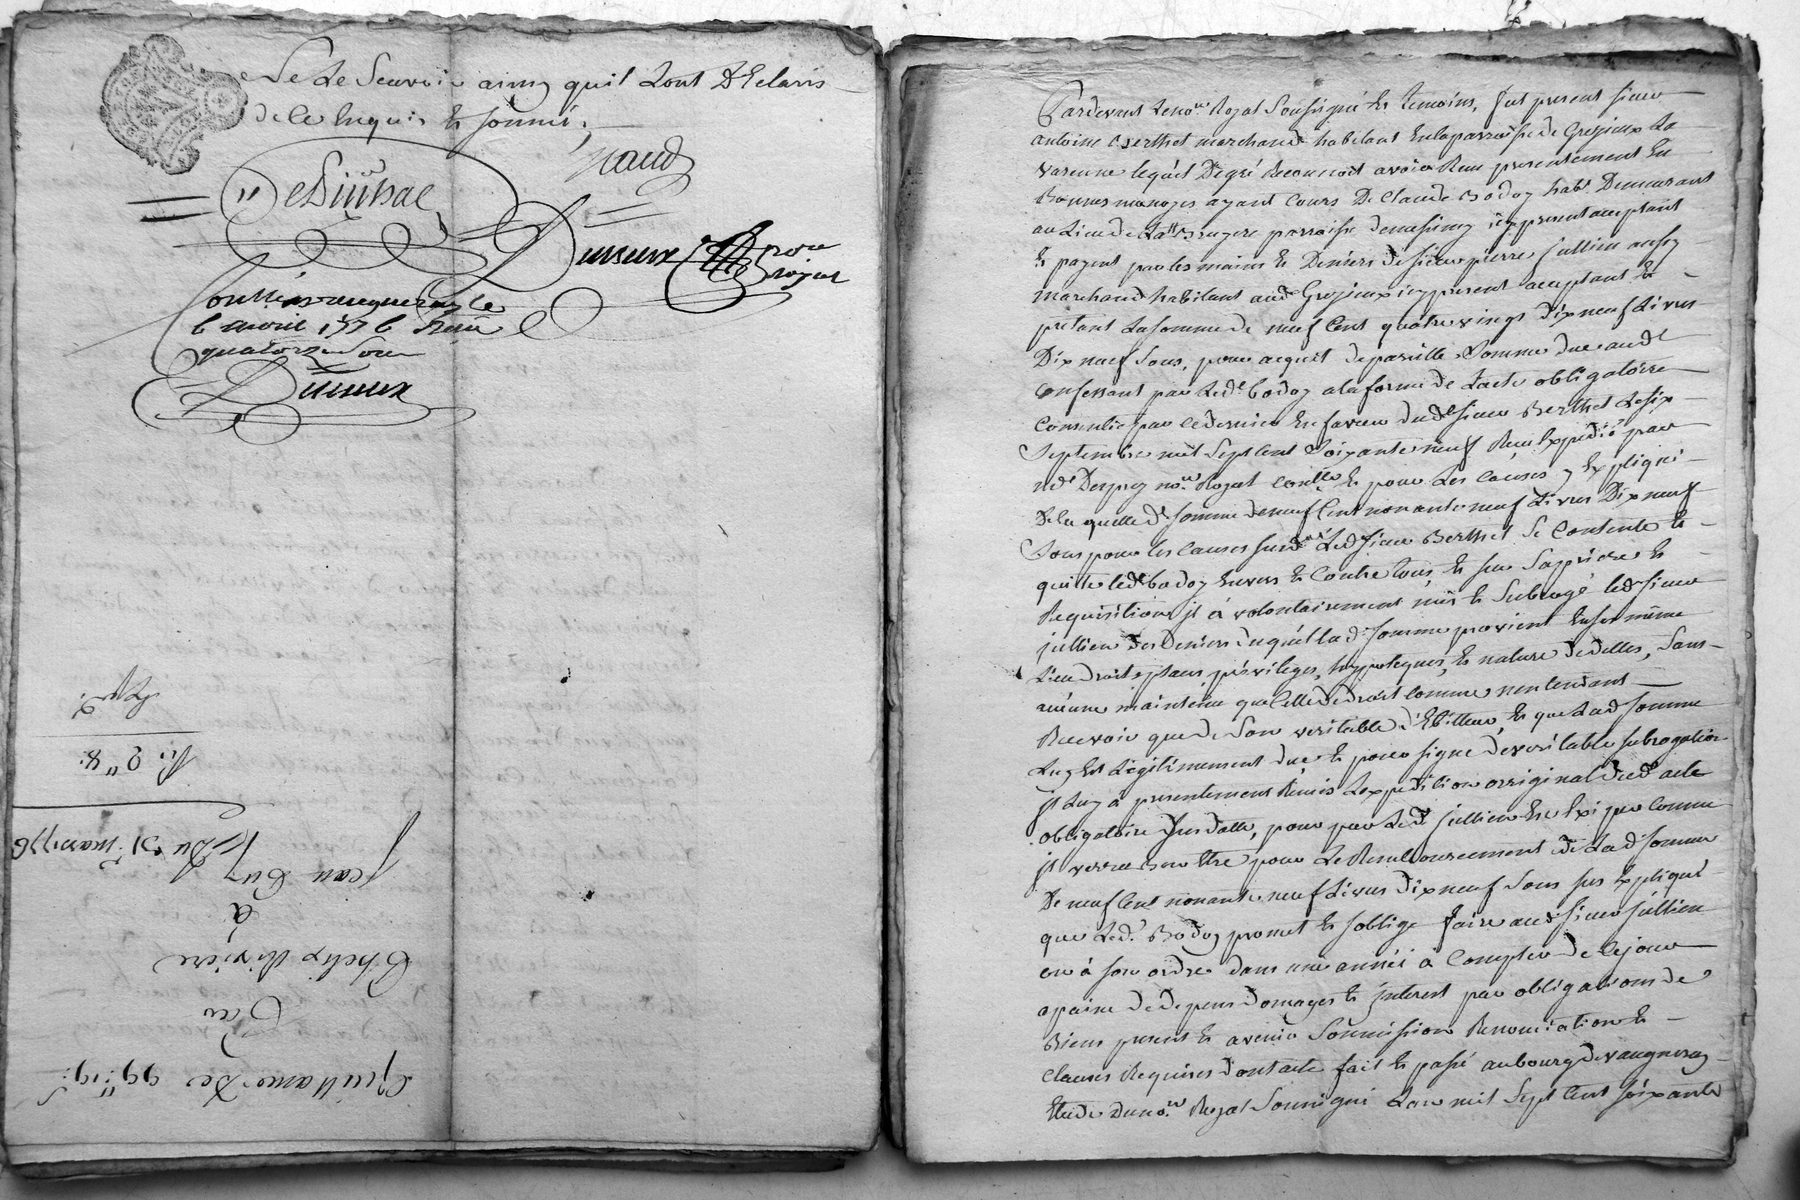 De Le Scavoir ainsy quil Lont Declaré
de ce Enquis et sommé.
Dussieux
noe royal
Con.lé a vaugneray le
6 avril 1776 Receu
quatorze Sous
Dussieux
Quittance de 99" 19s
Par
Thelix Riviere
à
Jean Guy
Du 31 mars 1776
Pardevant Le nore. Royal Soussigné et temoins, fut present sieur
antoine Berthet marchand habitant en la parroisse de Grezieux La
Varenne lequel De gré Reconnoit avoir Receu presentement En
Bonnes monoyes ayant Cours De Claude Bodoy habt. Demeurant
au Lieu de La Bruyere parroisse de messimy icy present acceptant
Et payant par les mains Et Deniers de sieur pierre Jullien aussy
marchand habitant aud. Grezieux icy present acceptant Et
pretant La somme de neuf Cent quatre vingt Dix neuf Livres
Dix neuf Sous, pour acquit de pareille Somme due aud.
Confessant par Led. bodoy a la forme de Lacte obligatoire
Consentie par ce dernier En faveur dud. sieur Berthet Le six
Septembre mil Sept Cent Soixante neuf Receu Expedié par
me. noe. Royal Et pour Les Causes y Expliqué
De la quelle d. somme de neuf Cent nonante neuf Livres Dix neuf
Sous pour les Causes susd. Led. sieur Berthet Se Contente Et
quitte led. bodoy Envers Et Contre tous, Et sur Sa priere Et
Requisition il a volontairement mis Et Subrogé led. sieur
jullien des Deniers duquel lad. somme provient En son même
Lieu droits places priviléges, hyppoteques, Et nature d'icelles, Sans
aucune maintenue que Celle de droit Comme nentendant
Recevoir que de Son veritable débitteur, Et que Lad. somme
Luy Est Légitimement due Et pour signe de veritable subrogation
il Luy a presentement Remis Lexpedition original dud. acte
obligatoire Sus datte, pour par Led. jullien En Exiper Comme
il verra Bon Etre pour Le Remboursement de Lad. somme
De neuf Cent nonante neuf Livres dix neuf Sous sus Expliqué
que Led. Bodoy promet Et soblige faire aud. sieur jullien
ou à son ordre dans une année a Compter de Ce jour
a paine de depens domages Et interest par obligations de
Biens present Et avenir Soumission Renonciation Et
Clauses Requises dont acte fait Et passé au bourg de vaugneray
Etude du noe. Royal Soussigné Lan mil Sept Cent soixante